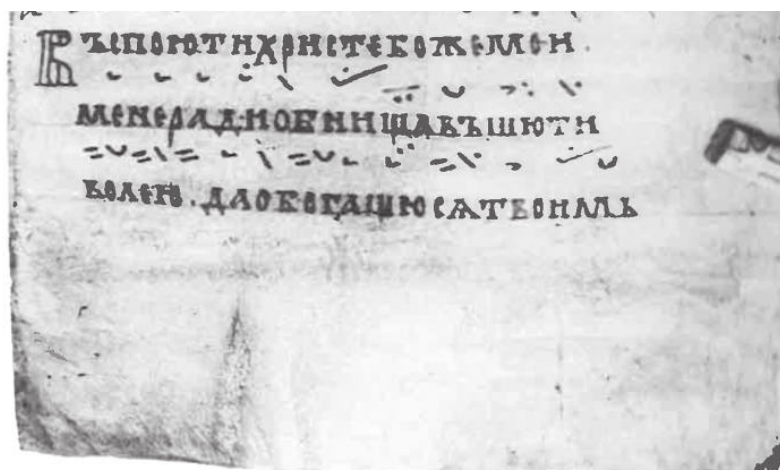 Въспоютихристебожемои.
менерадиобнищавъшюти
волею.даобогащюсѧтвоимь